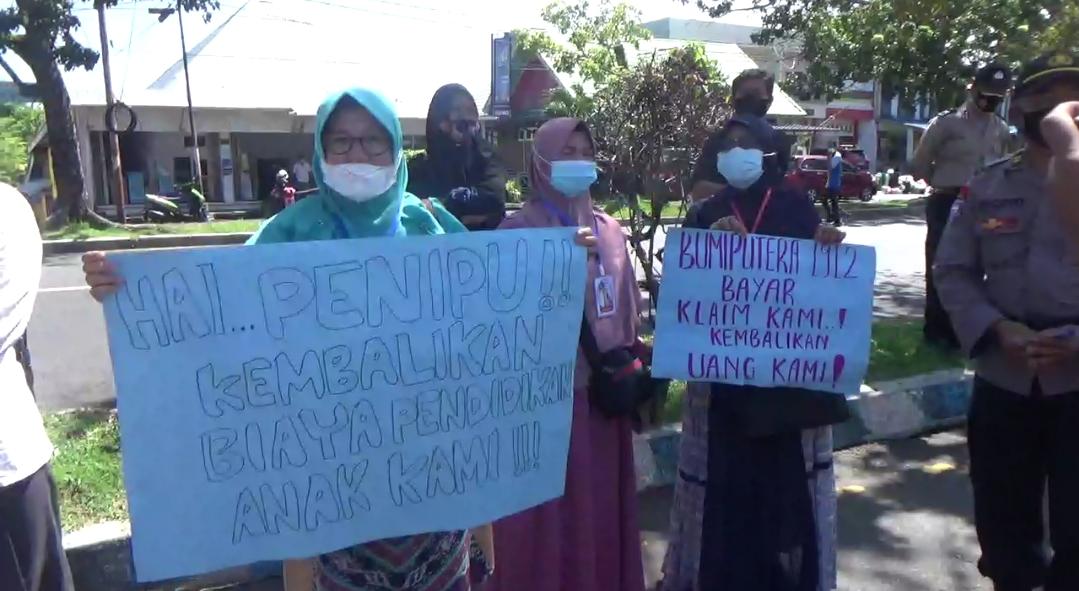 HAI... PENIPU!!
KEMBALIKAN
BIAYA PENDIDIKAN
ANAK KAMI!!!
BUMIPUTERA 1912
BAYAR
KLAIM KAMI..!
KEMBALIKAN
UANG KAMI!